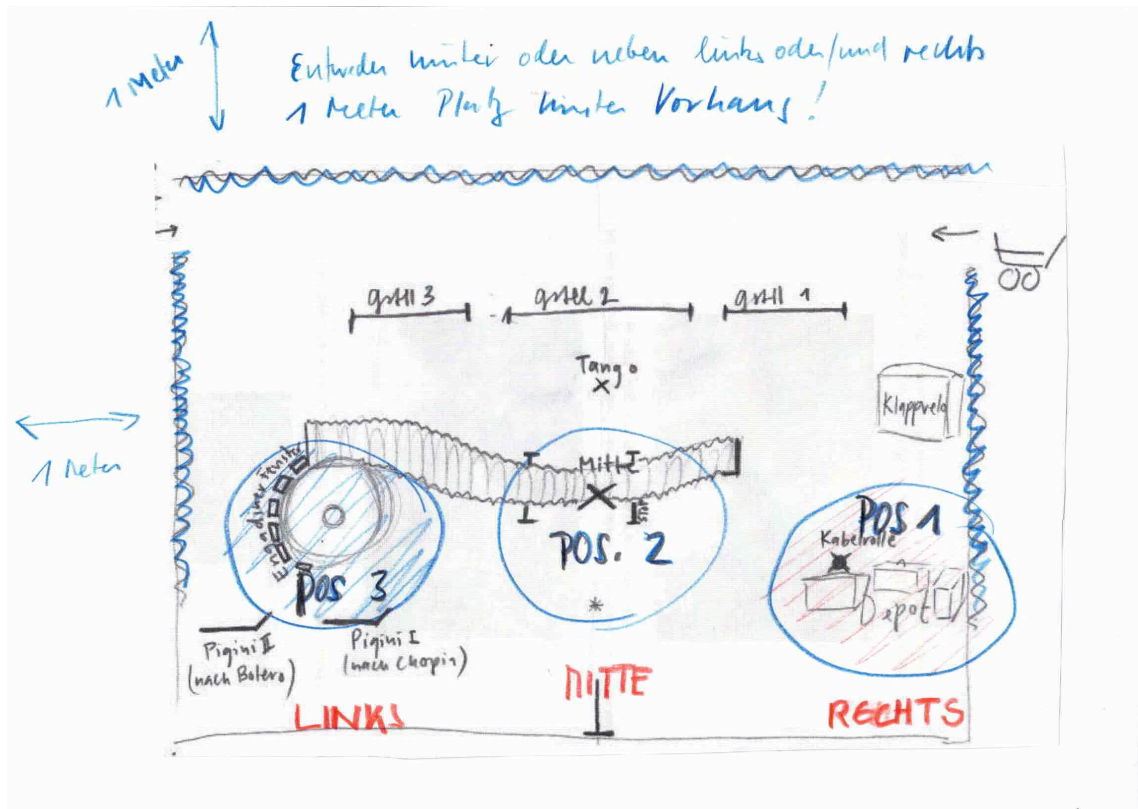 1 Meter
Entweder hinter oder neben links oder/und rechts
1 Meter Platz hinter Vorhang!
gstll 3
gstll 2
gstll 1
Tango
Klappvelo
1 Meter
Engadiner Fenster
Mitte
POS. 2
POS 1
Kabelrolle
Depot
POS 3
Pigini II
(nach Bolero)
Pigini I
(nach Chopin)
MITTE
LINKS
RECHTS